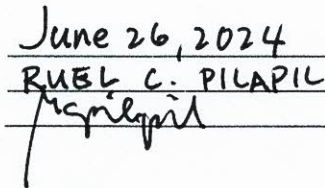 June 26, 2024
RUEL C. PILAPIL